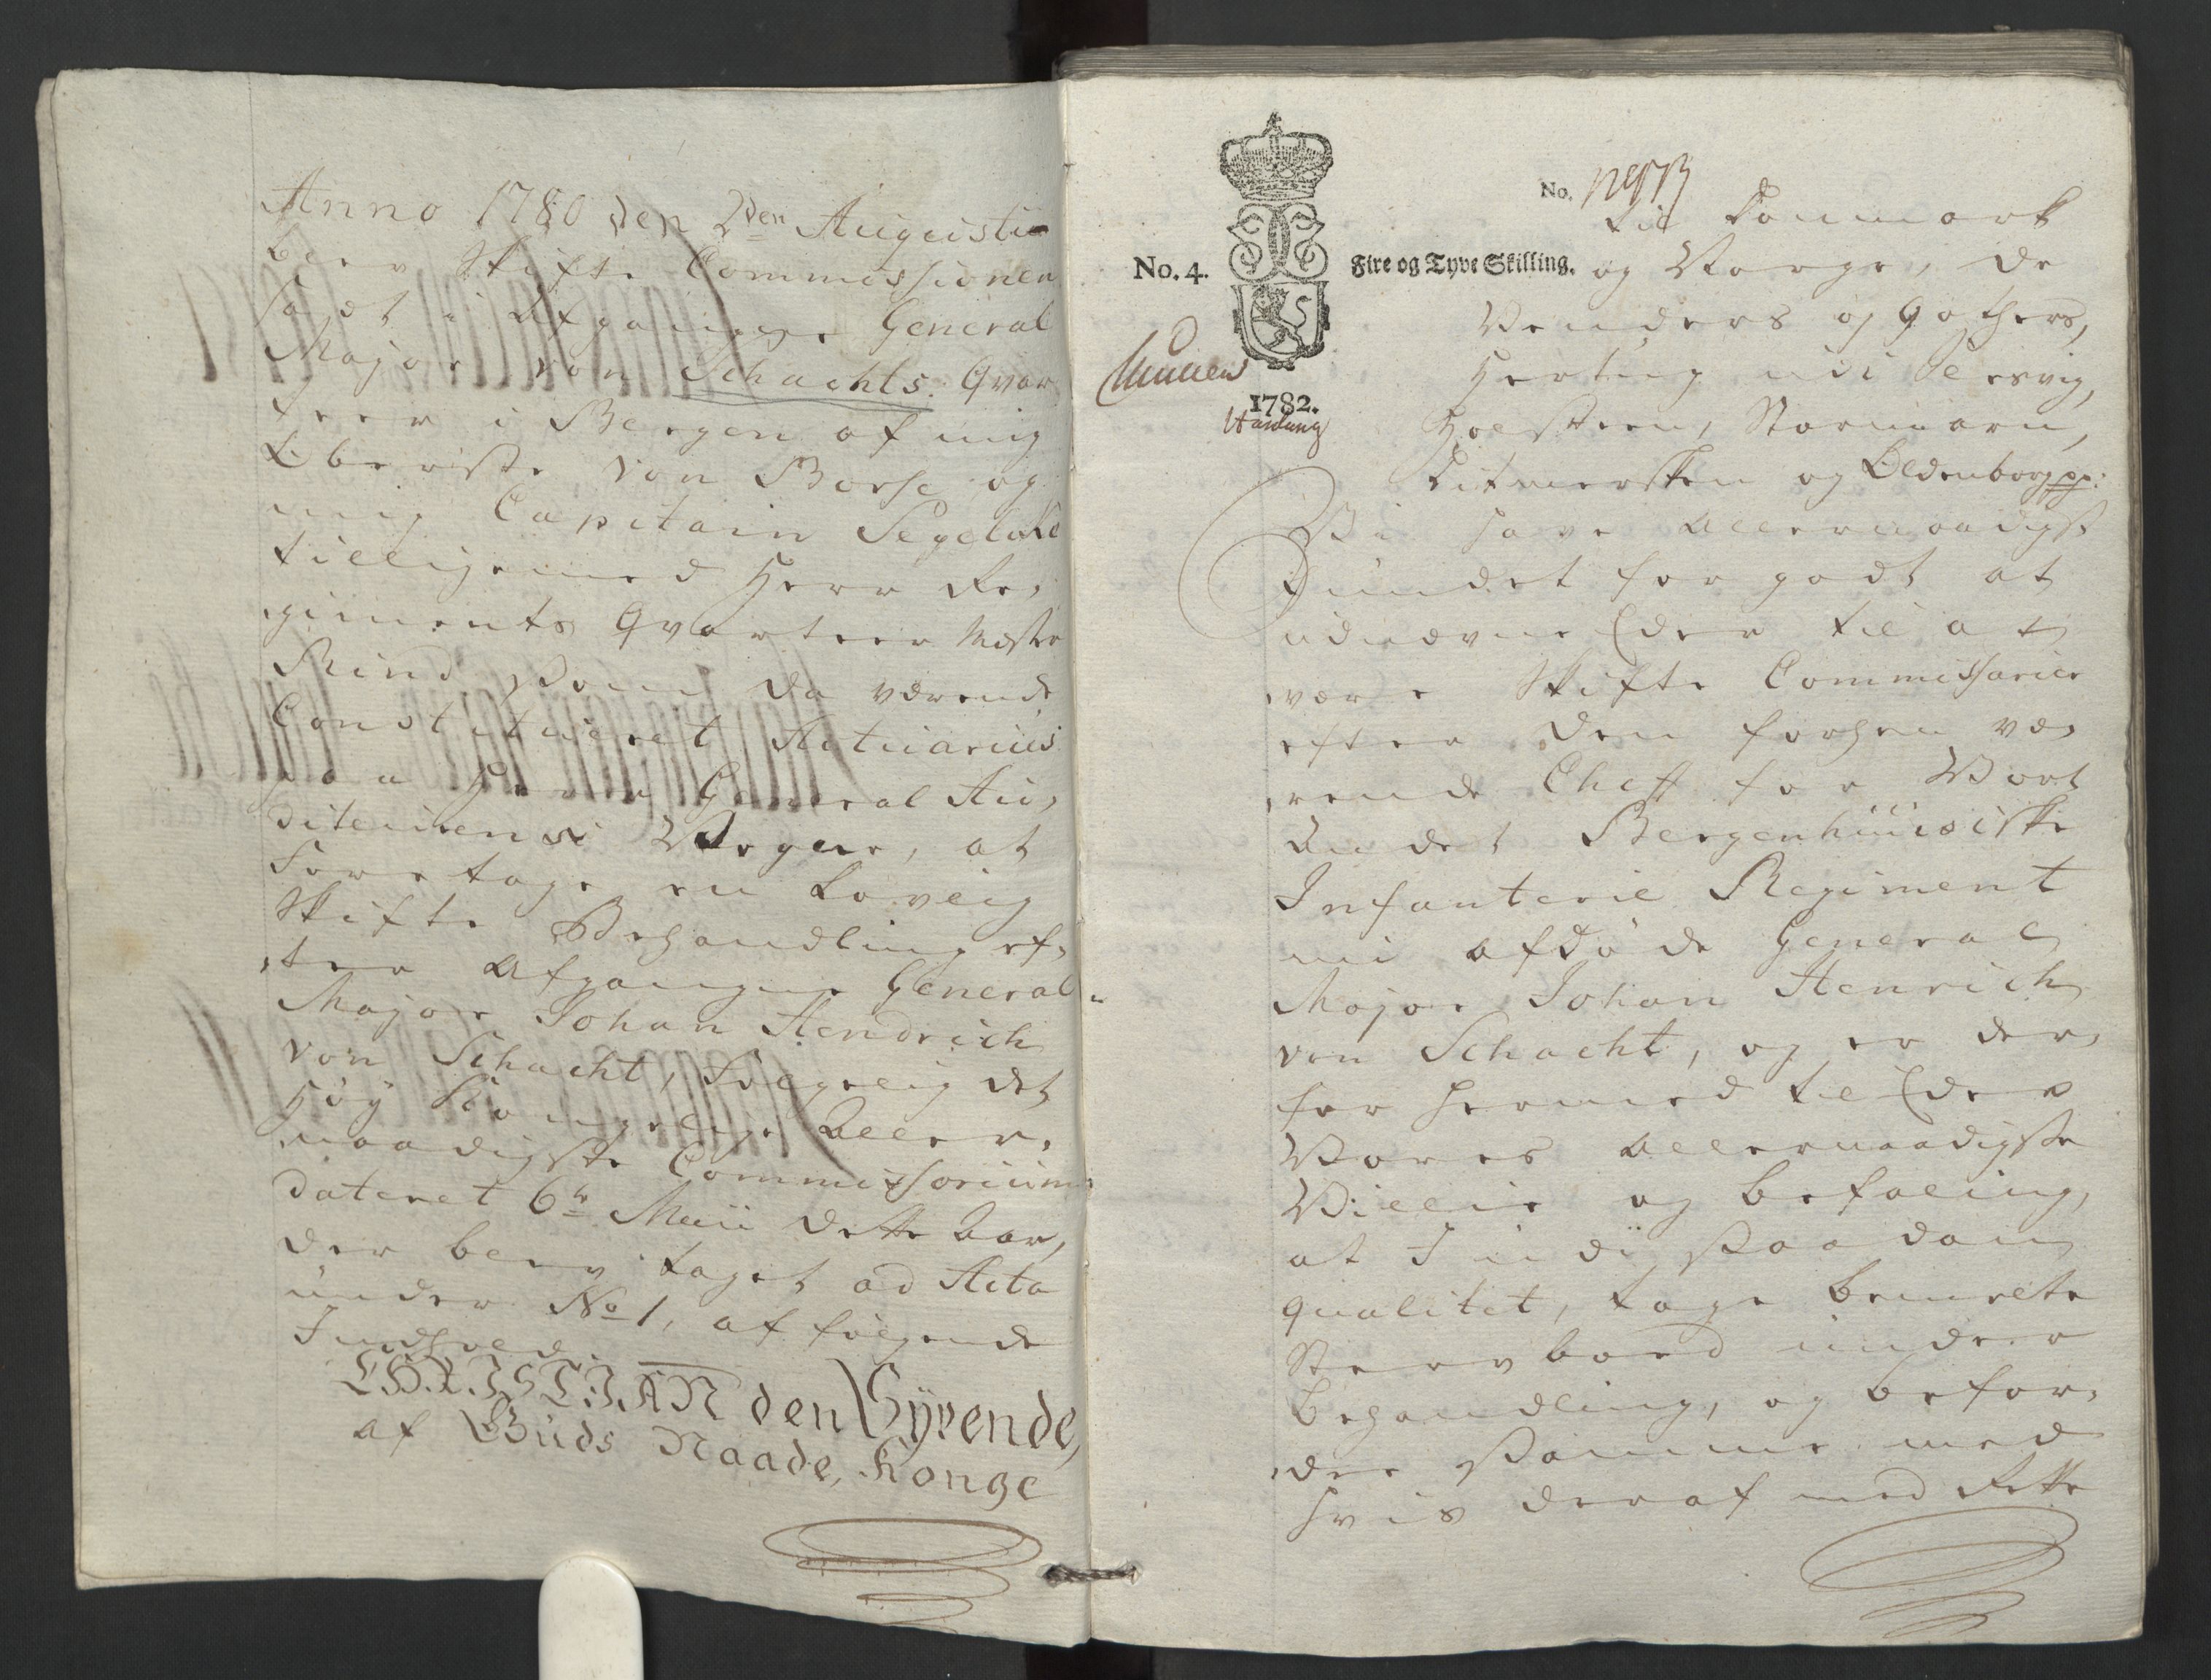 Anno 1780 den 2den Augustii
blev Skifte Commissionen
sadt i Afgangne General
Major von Schachts Qvar
teer i Bergen af mig
Oberste von Borse og
mig Capitain Segelcke
tilligemed Herr Re,
giments Qvarteer Mester
Rind som da værende
Constitueret Actuarius
paa Herr General Au,
diteurens Vegne, at
foretage en Lovlig
Skifte Behandling ef,
ter Afgangne General
Major Johan Hendrich
von Schacht, følgelig det
Høy Kongelige Aller,
naadigste Commissorium
dateret 6te Maii dette Aar,
der blev taget ad Acta
under No 1, af følgende
Indhold.
CHRISTIAN den Syvende,
af Guds Naade, Konge
No. 4.
Fire og Tyve Skilling.
1782.
Hartung
No.
til Danmark
og Norge, de
Venders og Gothers,
Hertug udi Slesvig,
Holsteen, Stormarn,
Ditmersken og Oldenborg pp:
Vi have Allernaadigst
fundet for godt at
udnævne Eder til at
være Skifte Commissarier
efter den forhen væ,
rende Cheff for Vort
Andet Bergenhuusiske
Infanterie Regiment
nu afdøde General
Major Johan Henrich
von Schacht, og er der,
for hermed til Eder
Vores Allernaadigste
Villie og Befaling,
at I udi saadan
qualitet, tage bemelte
Stervboed under
Behandling, og befor,
der samme med
hvis deraf med Rette